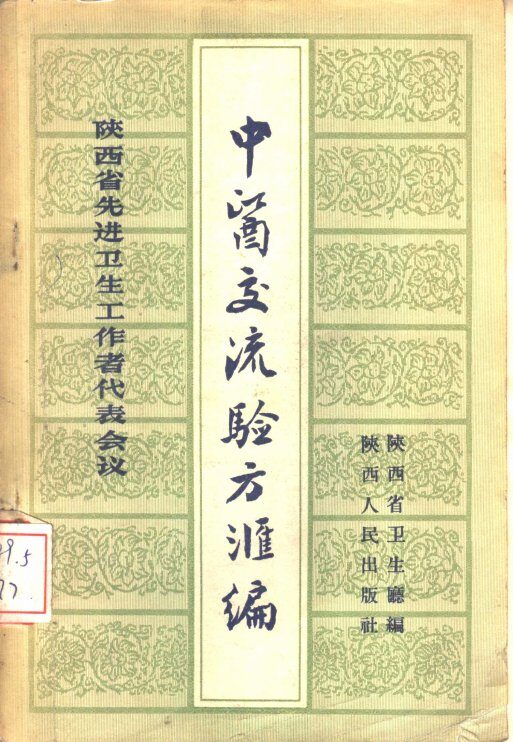 陝西省先进卫生工作者代表会议
中醫交流驗方滙编
陝西省卫生廳編
陝西人民出版社
9.5
77